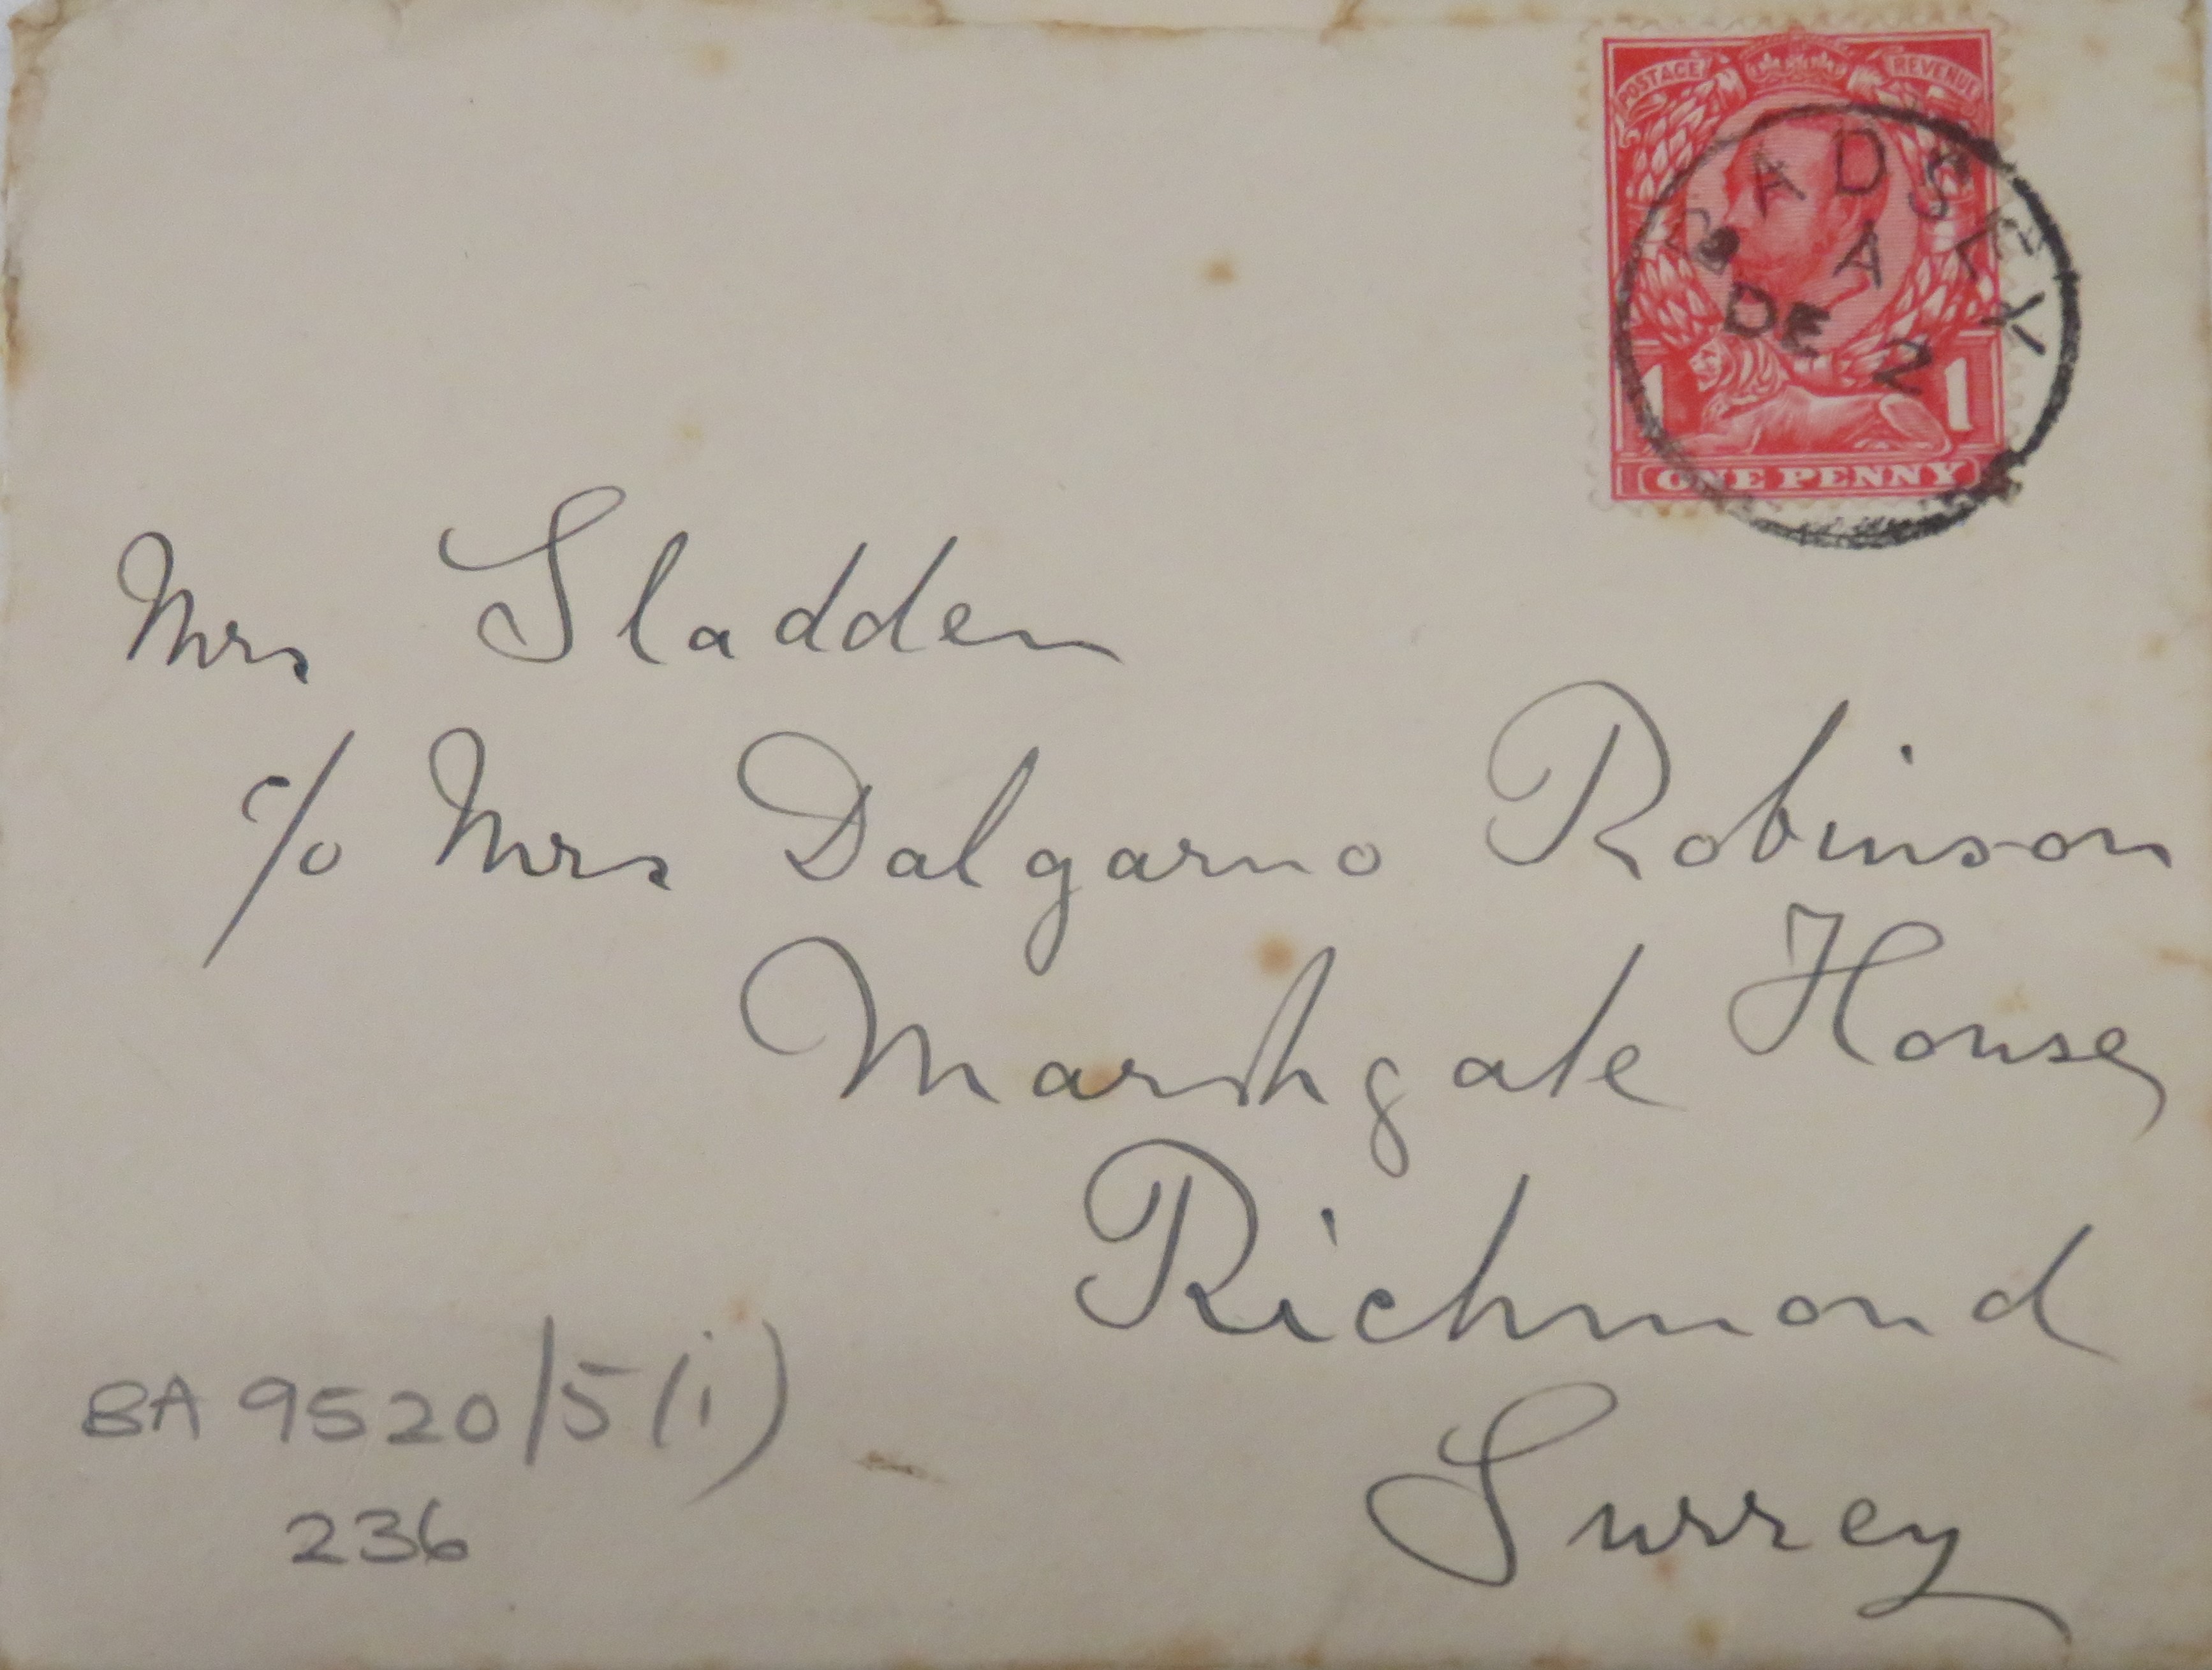 POSTAGE REVENUE
BADSEY
A
DE 2
1 1
ONE PENNY
Mrs Sladden
c/o Mrs Dalgarno Robinson
Marshgate House
Richmond
Surrey
BA 9520/5(i)
236